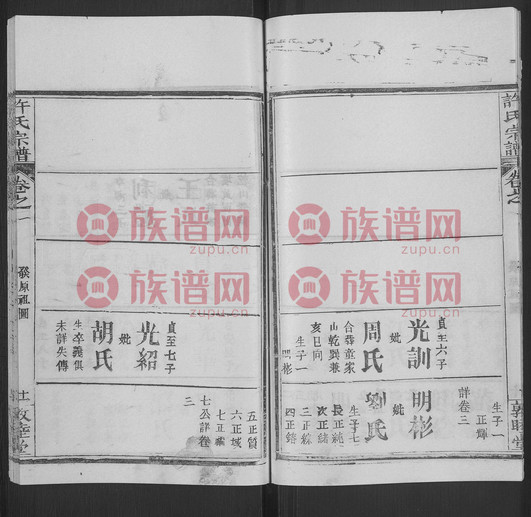 許氏宗譜
卷之
敦睦堂
貞至六子
光訓
妣
周氏
合葬童家
山乾巽兼
亥巳向
生子一
明彬
明彬
妣
劉氏
生子七
長正純
次正諸
三正綵
四正鎔
生子一
正輝
詳卷三
五正質
六正域
七正
七公詳卷
三
貞至七子
光紹
妣
胡氏
生卒葬俱
未詳失傳
許氏宗譜
卷之一
發原祖圖
敦睦堂
族谱网
zupu.cn
族谱网
zupu.cn
族谱网
zupu.cn
族谱网
zupu.cn